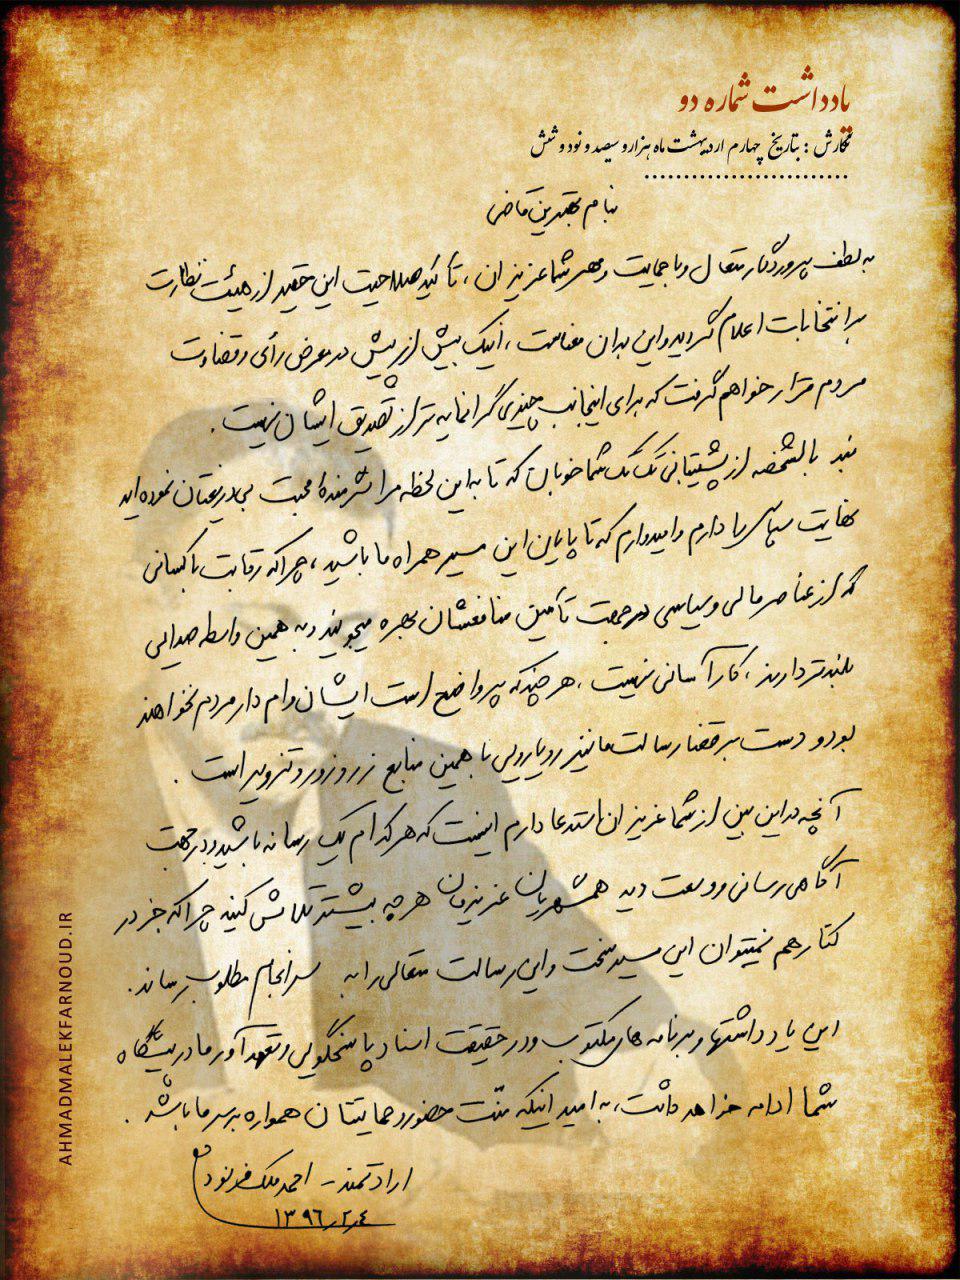 یادداشت شماره دو
نگارش : بتاریخ چهارم اردیبهشت ماه هزار و سیصد و نود و شش
بنام بهترین قاضی
به لطف پروردگار متعال و با حمایت و مهر شما عزیزان ، تأکید صلاحیت این حقیر از هیئت نظارت
بر انتخابات اعلام گردید و این بدان معناست ، اینک بیش از پیش در معرض رأی و قضاوت
مردم قرار خواهم گرفت که برای اینجانب چیزی گرانمایه تر از تصدیق ایشان نیست .
بنده بالشخصه از پشتیبانی تک تک شما خوبان که تا به این لحظه مرا شرمندهٔ محبت بی دریغتان نموده اید
نهایت سپاس را دارم و امیدوارم که تا پایان این مسیر همراه ما باشید ، چرا که رقابت با کسانی
که از عناصر مالی و سیاسی در جهت تأمین منافعشان بهره میجویند و به همین واسطه صدایی
بلندتر دارند ، کار آسانی نیست ، هر چند که پر واضح است ایشان وام دار مردم نخواهند
بود و دست بر قضا رسالت ما نیز رویارویی با همین منابع زر و زور و تزویر است .
آنچه در این بین از شما عزیزان استدعا دارم اینست که هر کدام یک رسانه باشید و در جهت
آگاهی رسانی و وسعت دید همشهریان عزیزمان هر چه بیشتر تلاش کنید چرا که جز در
کنار هم نمیتوان این مسیر سخت و این رسالت متعالی را به سرانجام مطلوب رساند .
این یادداشتها و برنامه های مکتوب و در حقیقت اسناد پاسخگویی و تعهد آور ما در پیشگاه
شما ادامه خواهد داشت ، به امید اینکه منّت حضور و حمایتتان همواره بر سر ما باشد .
ارادتمند - احمد ملک فرنود
۱۳۹۶٫۲٫۴
AHMADMALEKFARNOUD.IR